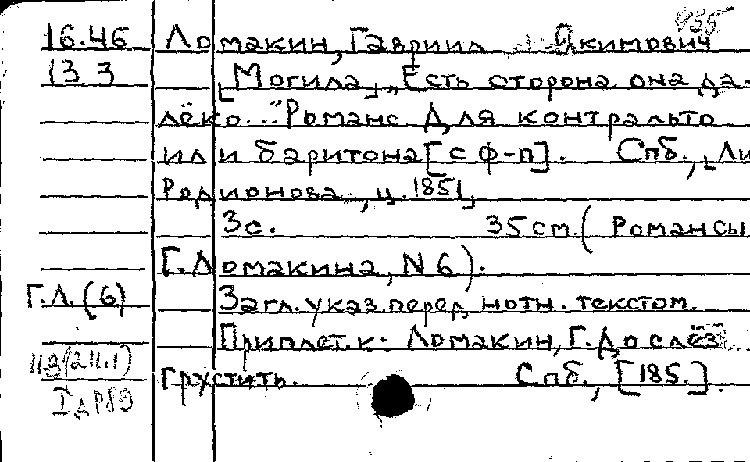 935
16.46 Ломакин, Гавриил Якимович
13 3 [Могила] „Есть сторона она да-
лёко..." Романс Для контральто
или баритона [с ф-п]. Спб., [Ли
Родионова, ц. 1851]
3с. 35см. (Романсы
Г. Ломакина, N 6).
Г.Л.(6) Загл. указ. перед нотн. текстом.
Приплет. к: Ломакин, Г. До слёз
грустить. Спб., [185.].